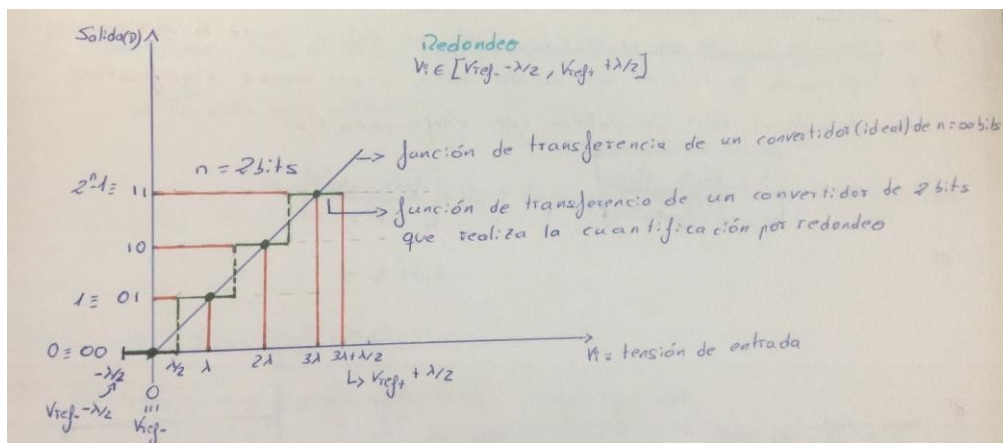 Salida(D)
Redondeo
Vi ∈ [Vref- -λ/2, Vref+ +λ/2]
n = 2bits
-> función de transferencia de un convertidor(ideal) de n=∞ bits
2ⁿ-1 ≡ 11
-> función de transferencia de un convertidor de 2 bits
que realiza la cuantificación por redondeo
10
1 ≡ 01
0 ≡ 00
-λ/2
λ/2 λ 2λ 3λ 3λ+λ/2
Vi = tensión de entrada
Vref- -λ/2
0
Vref-
↳ Vref+ + λ/2